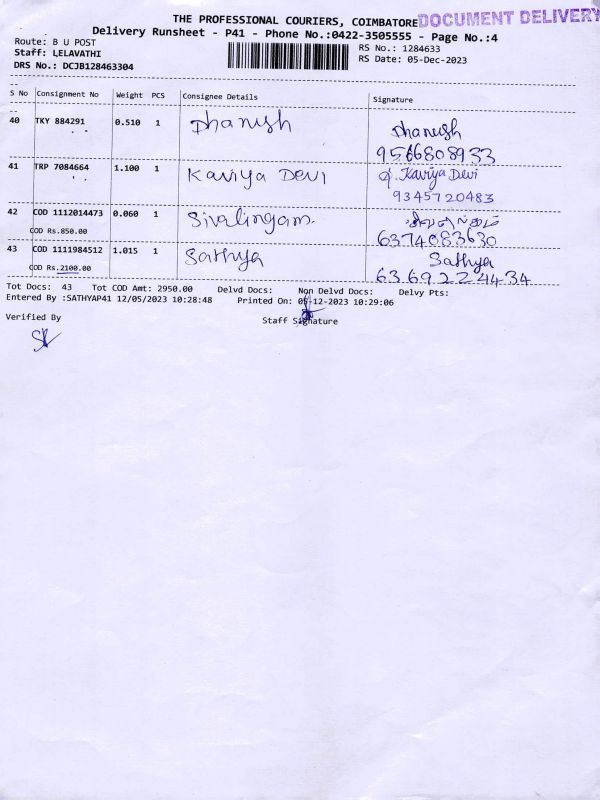 THE PROFESSIONAL COURIERS, COIMBATORE DOCUMENT DELIVERY
Delivery Runsheet - P41 - Phone No.:0422-3505555 - Page No.:4
Route: B U POST
Staff: LELAVATHI
DRS No.: DCJB128463304
RS No.: 1284633
RS Date: 05-Dec-2023
S No Consignment No Weight PCS Consignee Details Signature
40 TKY 884291 0.510 1 Dhanush Dhanush
9566808933
41 TRP 7084664 1.100 1 Kaviya Devi Kaviya Devi
9345720483
42 COD 1112014473 0.060 1 Sivalingam.
COD Rs.850.00 6374083630
43 COD 1111984512 1.015 1 Sathya Sathya
COD Rs.2100.00 6369224434
Tot Docs: 43 Tot COD Amt: 2950.00 Delvd Docs: Non Delvd Docs: Delvy Pts:
Entered By :SATHYAP41 12/05/2023 10:28:48 Printed On: 05-12-2023 10:29:06
Verified By
Staff Signature